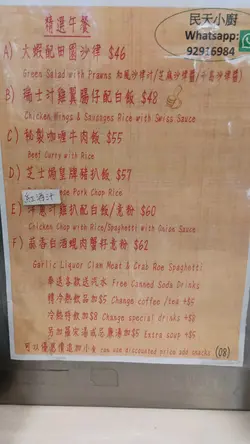 精選午餐
民天小廚
Whatsapp:
92915984
A) 大蝦配田園沙律 $46
Green Salad with Prawns
B) 瑞士汁雞翼腸仔配白飯 $48
Chicken Wings & Sausages Rice with Swiss Sauce
C) 秘製咖喱牛肉飯 $55
Beef Curry with Rice
D) 芝士燒豬扒飯 $57
紅酒汁
Pork Chop Rice
E) 洋蔥汁雞扒配白飯/意粉 $60
Chicken Chop with Rice/Spaghetti with Onion Sauce
F) 蒜香白酒蜆肉蟹籽意粉 $62
Garlic Liquor Clam Meat & Crab Roe Spaghetti
奉送各款送汽水 Free Canned Soda Drinks
轉冷熱飲品加$5 Change coffee/tea +$5
轉冷特飲加$8 Change special drinks
另加羅宋湯或忌廉湯加$5 Extra soup +$5
可以優惠價追加小食 can use discounted price add snacks (08)